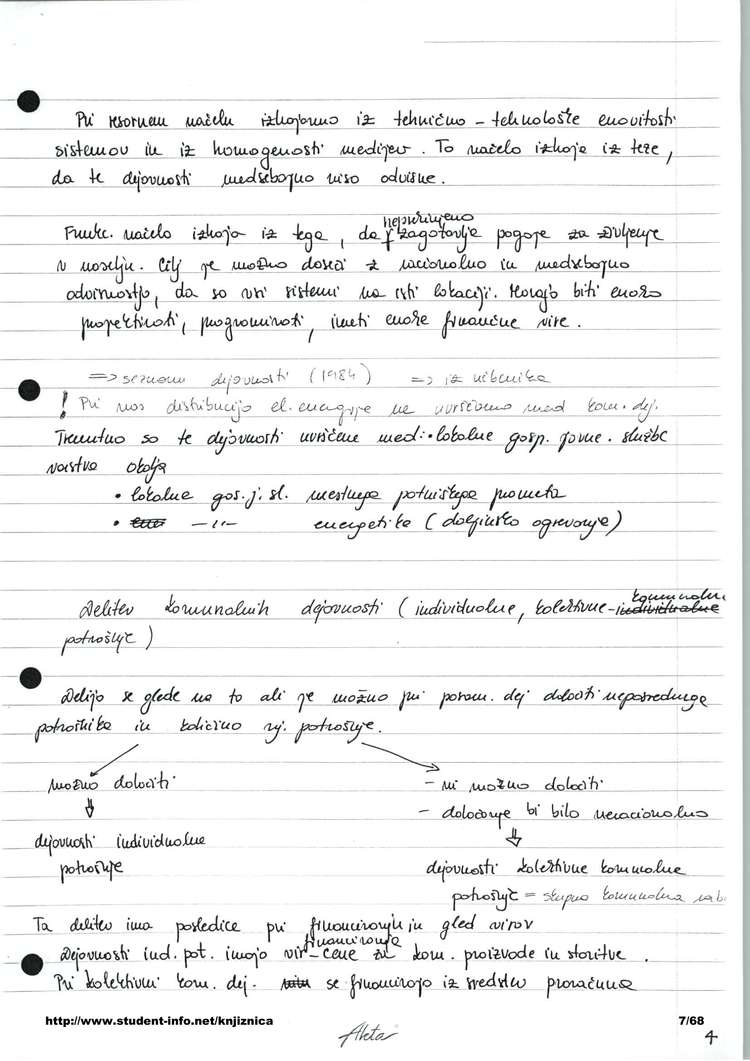 Pri resornem načelu izhajamo iz tehnično - tehnološke enovitosti
sistemov in iz homogenosti medijev. To načelo izhaja iz teze,
da te dejavnosti medsebojno niso odvisne.
Funkc. načelo izhaja iz tega, da neprekinjeno zagotavlja pogoje za življenje
v naselju. Cilj je možno doseči z racionalno in medsebojno
odvisnostjo, da so vsi sistemi na isti lokaciji. Morajo biti enako
projektirati, programirati, imeti enake finančne vire.
=> seznam dejavnosti (1984) => iz učbenika
! Pri nas distribucijo el. energije ne uvrščamo med kom. dej.
Trenutno so te dejavnosti uvrščene med: • lokalne gosp. javne. službe
varstva okolja
• lokalne gos. j. sl. mestnega potniškega prometa
• -"- energetike (daljinsko ogrevanje)
Delitev komunalnih dejavnosti (individualne, kolektivne - komunalne
potrošnje)
Delijo se glede na to ali je možno pri posam. dej določiti neposrednega
potrošnika in količino nj. potrošnje.
možno določiti
- ni možno določiti
- določanje bi bilo neracionalno
dejavnosti individualne
potrošnje
dejavnosti kolektivne komunalne
potrošnje = skupna komunalna rab
Ta delitev ima posledice pri financiranju in gled virov
Dejavnosti ind. pot. imajo vir financiranja - cene za kom. proizvode in storitve.
Pri kolektivni kom. dej. se financirajo iz sredstev proračuna
http://www.student-info.net/knjiznica
7/68
4